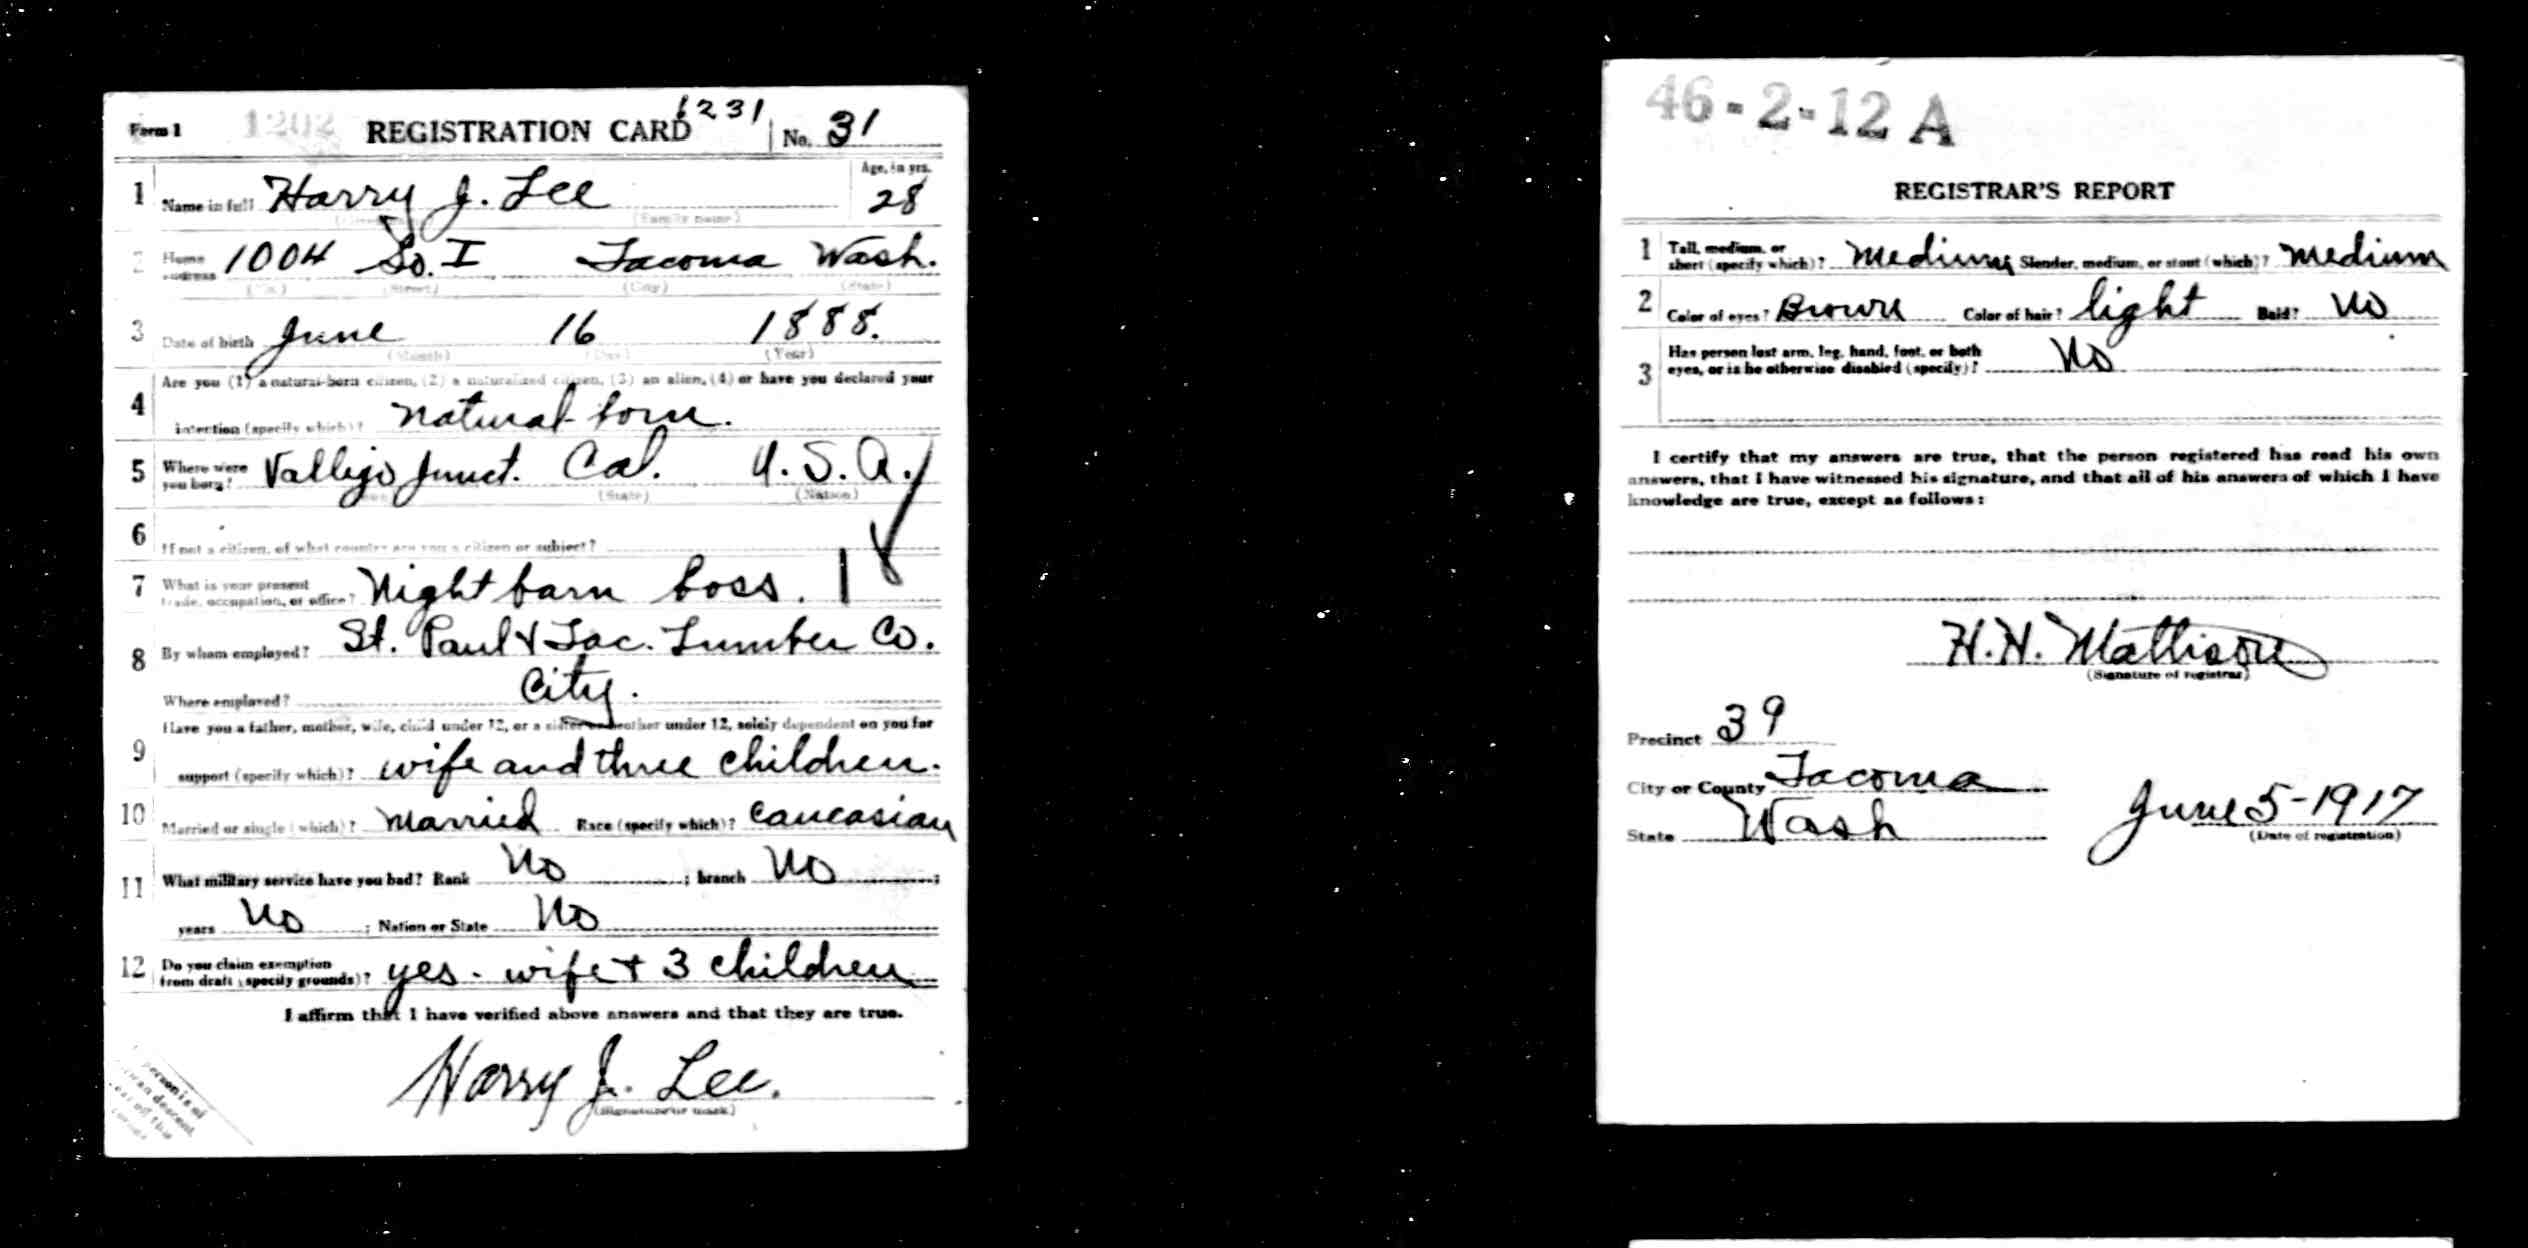 Form 1 1202 REGISTRATION CARD 1231 No. 31
1 Name in full Harry J. Lee Age, in yrs. 28
(Family name)
2 Home address 1004 So. I Tacoma Wash.
(No.) (Street) (City) (State)
3 Date of birth June 16 1888.
(Month) (Day) (Year)
Are you (1) a natural-born citizen, (2) a naturalized citizen, (3) an alien, (4) or have you declared your
4 intention (specify which)? natural born.
5 Where were you born? Vallejo Junct. Cal. U.S.A.
(State) (Nation)
6 If not a citizen, of what country are you a citizen or subject?
7 What is your present trade, occupation, or office? Night barn boss. 1
8 By whom employed? St. Paul & Tac. Lumber Co.
Where employed? City.
Have you a father, mother, wife, child under 12, or a sister or brother under 12, solely dependent on you for
9 support (specify which)? wife and three children.
10 Married or single (which)? Married Race (specify which)? Caucasian
11 What military service have you had? Rank No ; branch No ;
years No ; Nation or State No
12 Do you claim exemption from draft (specify grounds)? yes - wife + 3 children
I affirm that I have verified above answers and that they are true.
Harry J. Lee.
(Signature or mark)
person is of
descent
46-2-12 A
REGISTRAR'S REPORT
1 Tall, medium, or short (specify which)? Medium Slender, medium, or stout (which)? Medium
2 Color of eyes? Brown Color of hair? light Bald? No
3 Has person lost arm, leg, hand, foot, or both eyes, or is he otherwise disabled (specify)? No
I certify that my answers are true, that the person registered has read his own
answers, that I have witnessed his signature, and that all of his answers of which I have
knowledge are true, except as follows:
H.H. Mattison
(Signature of registrar)
Precinct 39
City or County Tacoma
State Wash June 5-1917
(Date of registration)